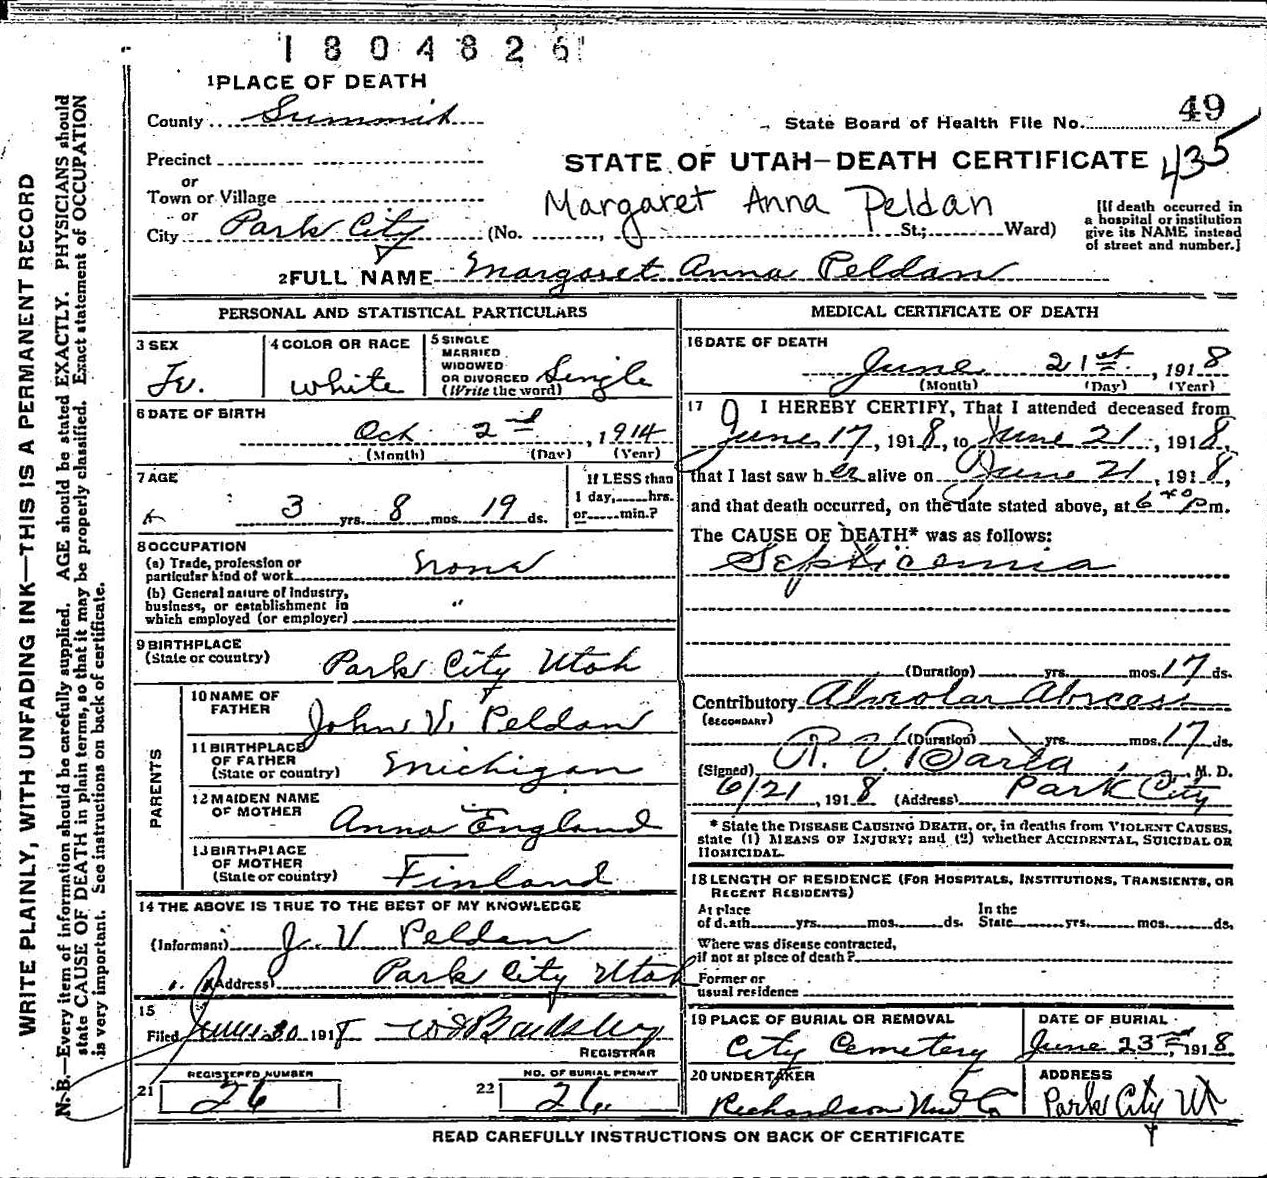 1804826
1 PLACE OF DEATH
County Summit
State Board of Health File No. 49
Precinct
STATE OF UTAH—DEATH CERTIFICATE 435
or
Town or Village
Margaret Anna Peldan
or
City Park City (No. , St.; Ward)
[If death occurred in
a hospital or institution
give its NAME instead
of street and number.]
2 FULL NAME Margaret Anna Peldan
PERSONAL AND STATISTICAL PARTICULARS
3 SEX
Fe.
4 COLOR OR RACE
White
5 SINGLE
MARRIED
WIDOWED
OR DIVORCED
(Write the word) Single
6 DATE OF BIRTH
Oct 2nd, 1914
(Month) (Day) (Year)
7 AGE
3 yrs. 8 mos. 19 ds.
If LESS than
1 day, hrs.
or min.?
8 OCCUPATION
(a) Trade, profession or
particular kind of work None
(b) General nature of industry,
business, or establishment in
which employed (or employer) "
9 BIRTHPLACE
(State or country) Park City Utah
PARENTS
10 NAME OF
FATHER John V. Peldan
11 BIRTHPLACE
OF FATHER
(State or country) Michigan
12 MAIDEN NAME
OF MOTHER Anna England
13 BIRTHPLACE
OF MOTHER
(State or country) Finland
14 THE ABOVE IS TRUE TO THE BEST OF MY KNOWLEDGE
(Informant) J. V Peldan
(Address) Park City Utah
15
Filed June 30 1918 W D Bardsley
REGISTRAR
21 REGISTERED NUMBER
26
22 NO. OF BURIAL PERMIT
26
MEDICAL CERTIFICATE OF DEATH
16 DATE OF DEATH
June 21st, 1918
(Month) (Day) (Year)
17 I HEREBY CERTIFY, That I attended deceased from
June 17, 1918, to June 21, 1918,
that I last saw her alive on June 21, 1918,
and that death occurred, on the date stated above, at 6 P m.
The CAUSE OF DEATH* was as follows:
Septicemia
(Duration) yrs. mos. 17 ds.
Contributory Alveolar Abscess
(SECONDARY)
(Duration) yrs. mos. 17 ds.
(Signed) M. D.
6/21, 1918 (Address) Park City
* State the DISEASE CAUSING DEATH, or, in deaths from VIOLENT CAUSES,
state (1) MEANS OF INJURY; and (2) whether ACCIDENTAL, SUICIDAL OR
HOMICIDAL.
18 LENGTH OF RESIDENCE (FOR HOSPITALS, INSTITUTIONS, TRANSIENTS, OR
RECENT RESIDENTS)
At place
of death yrs. mos. ds.
In the
State yrs. mos. ds.
Where was disease contracted,
if not at place of death?
Former or
usual residence
19 PLACE OF BURIAL OR REMOVAL
City Cemetery
DATE OF BURIAL
June 23rd, 1918
20 UNDERTAKER
Richardson Und Co
ADDRESS
Park City Ut
READ CAREFULLY INSTRUCTIONS ON BACK OF CERTIFICATE
WRITE PLAINLY, WITH UNFADING INK—THIS IS A PERMANENT RECORD
N. B.—Every item of information should be carefully supplied. AGE should be stated EXACTLY. PHYSICIANS should
state CAUSE OF DEATH in plain terms, so that it may be properly classified. Exact statement of OCCUPATION
is very important. See instructions on back of certificate.